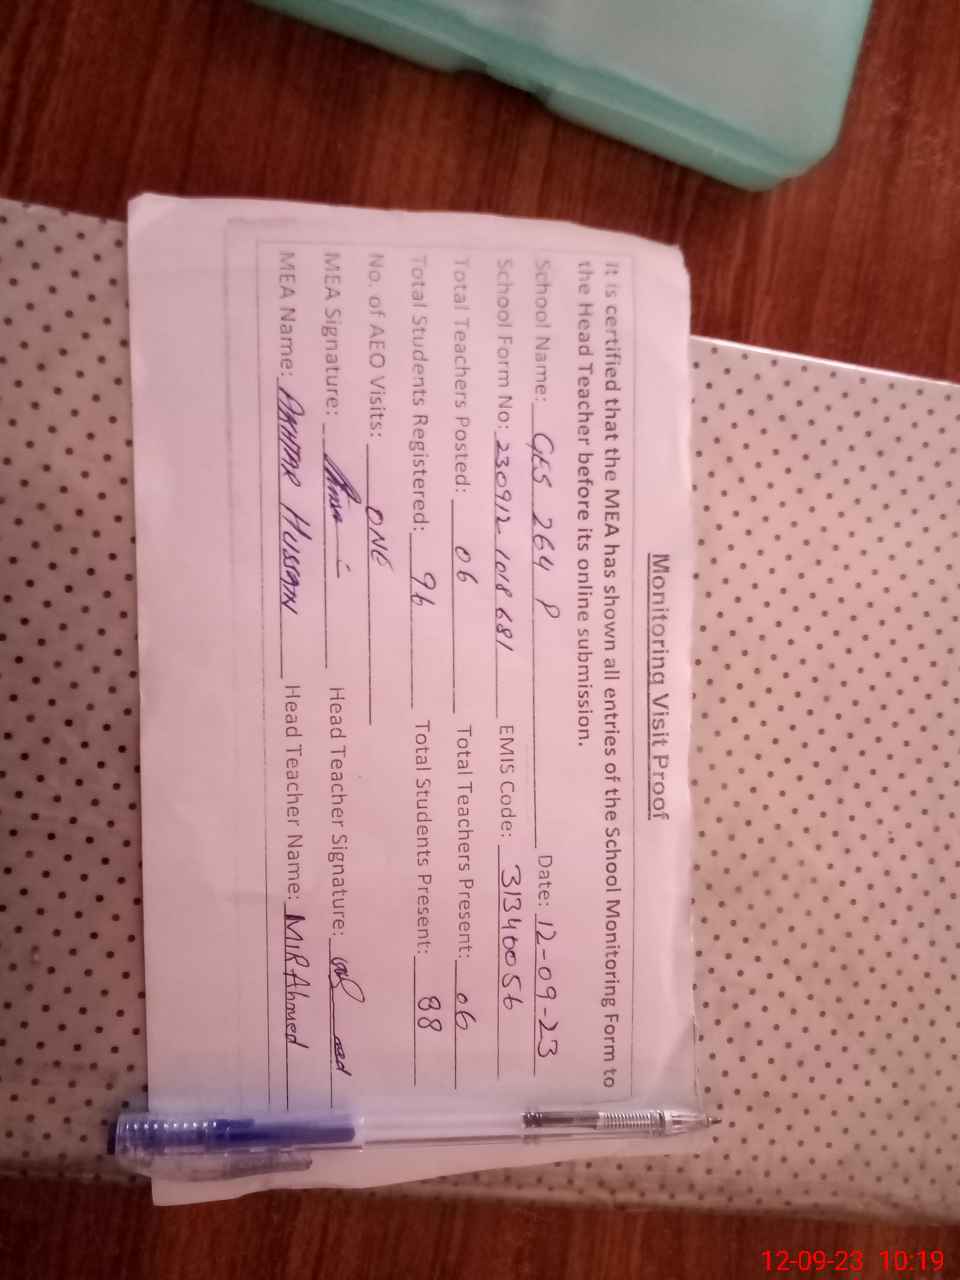 Monitoring Visit Proof
It is certified that the MEA has shown all entries of the School Monitoring Form to
the Head Teacher before its online submission.
School Name: GES 264 P Date: 12-09-23
School Form No: 230912 1018681 EMIS Code: 31340056
Total Teachers Posted: 06 Total Teachers Present: 06
Total Students Registered: 96 Total Students Present: 88
No. of AEO Visits: ONE
MEA Signature: Head Teacher Signature:
MEA Name: AKHTAR HUSSAIN Head Teacher Name: MIR Ahmed
12-09-23 10:19